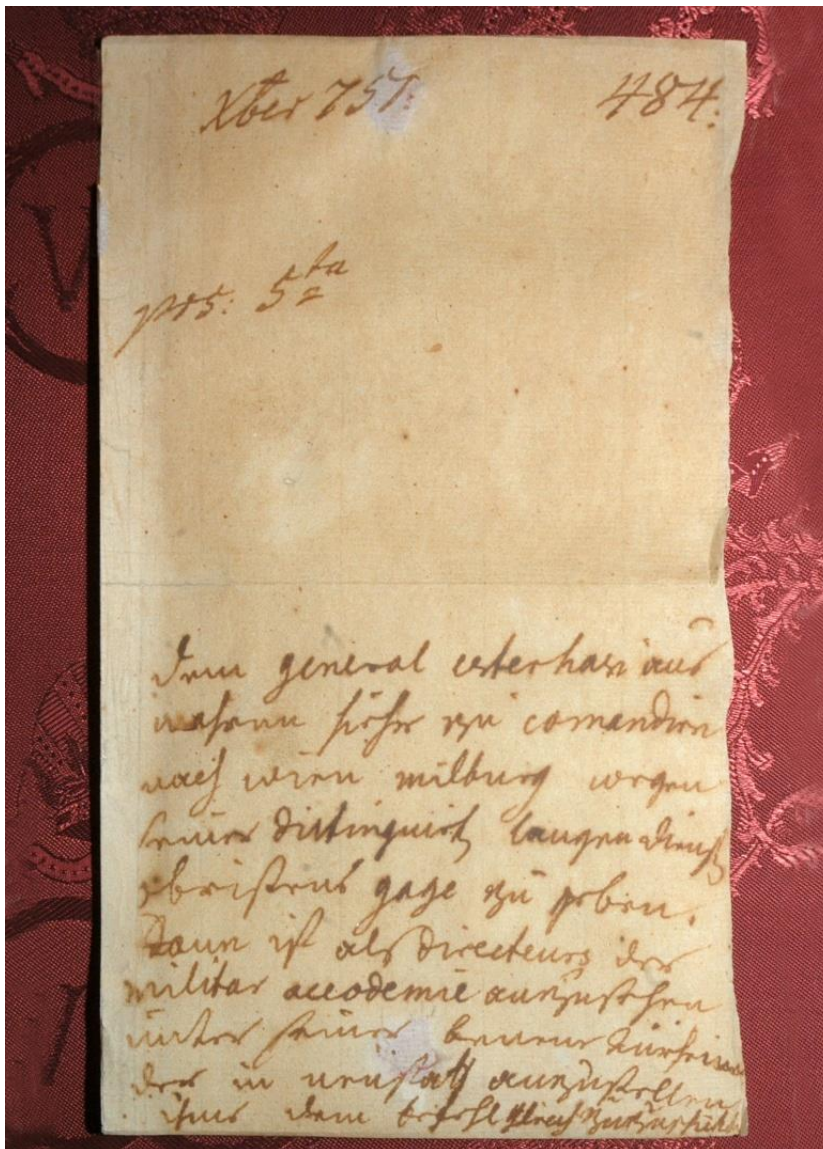 Xber 751. 484.
prs: 5ta
dem general esterhasi aus
mähren hieher zu comandirn
nach wien milburg wegen
seiner distinguirt langen dienst
obristens gage zu geben.
Daun ist als Directeur der
militar accademie anzusehen
unter seiner
der in neustatt anzustellen
ihme dem befehl gleich zuzuschik